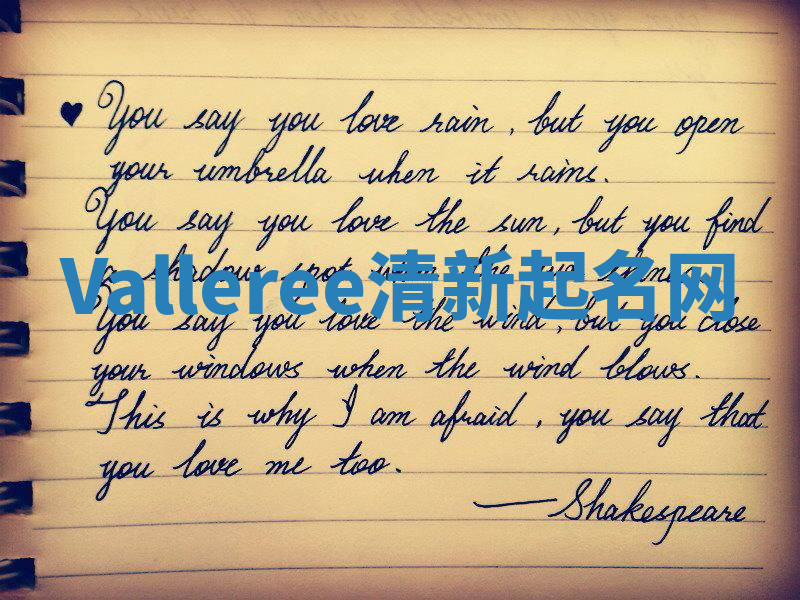 ♥ You say you love rain, but you open
your umbrella when it rains.
You say you love the sun, but you find
a shadow spot when the sun shines.
Valleree清新起名网
You say you love the wind, but you close
your windows when the wind blows.
This is why I am afraid, you say that
you love me too.
— Shakespeare